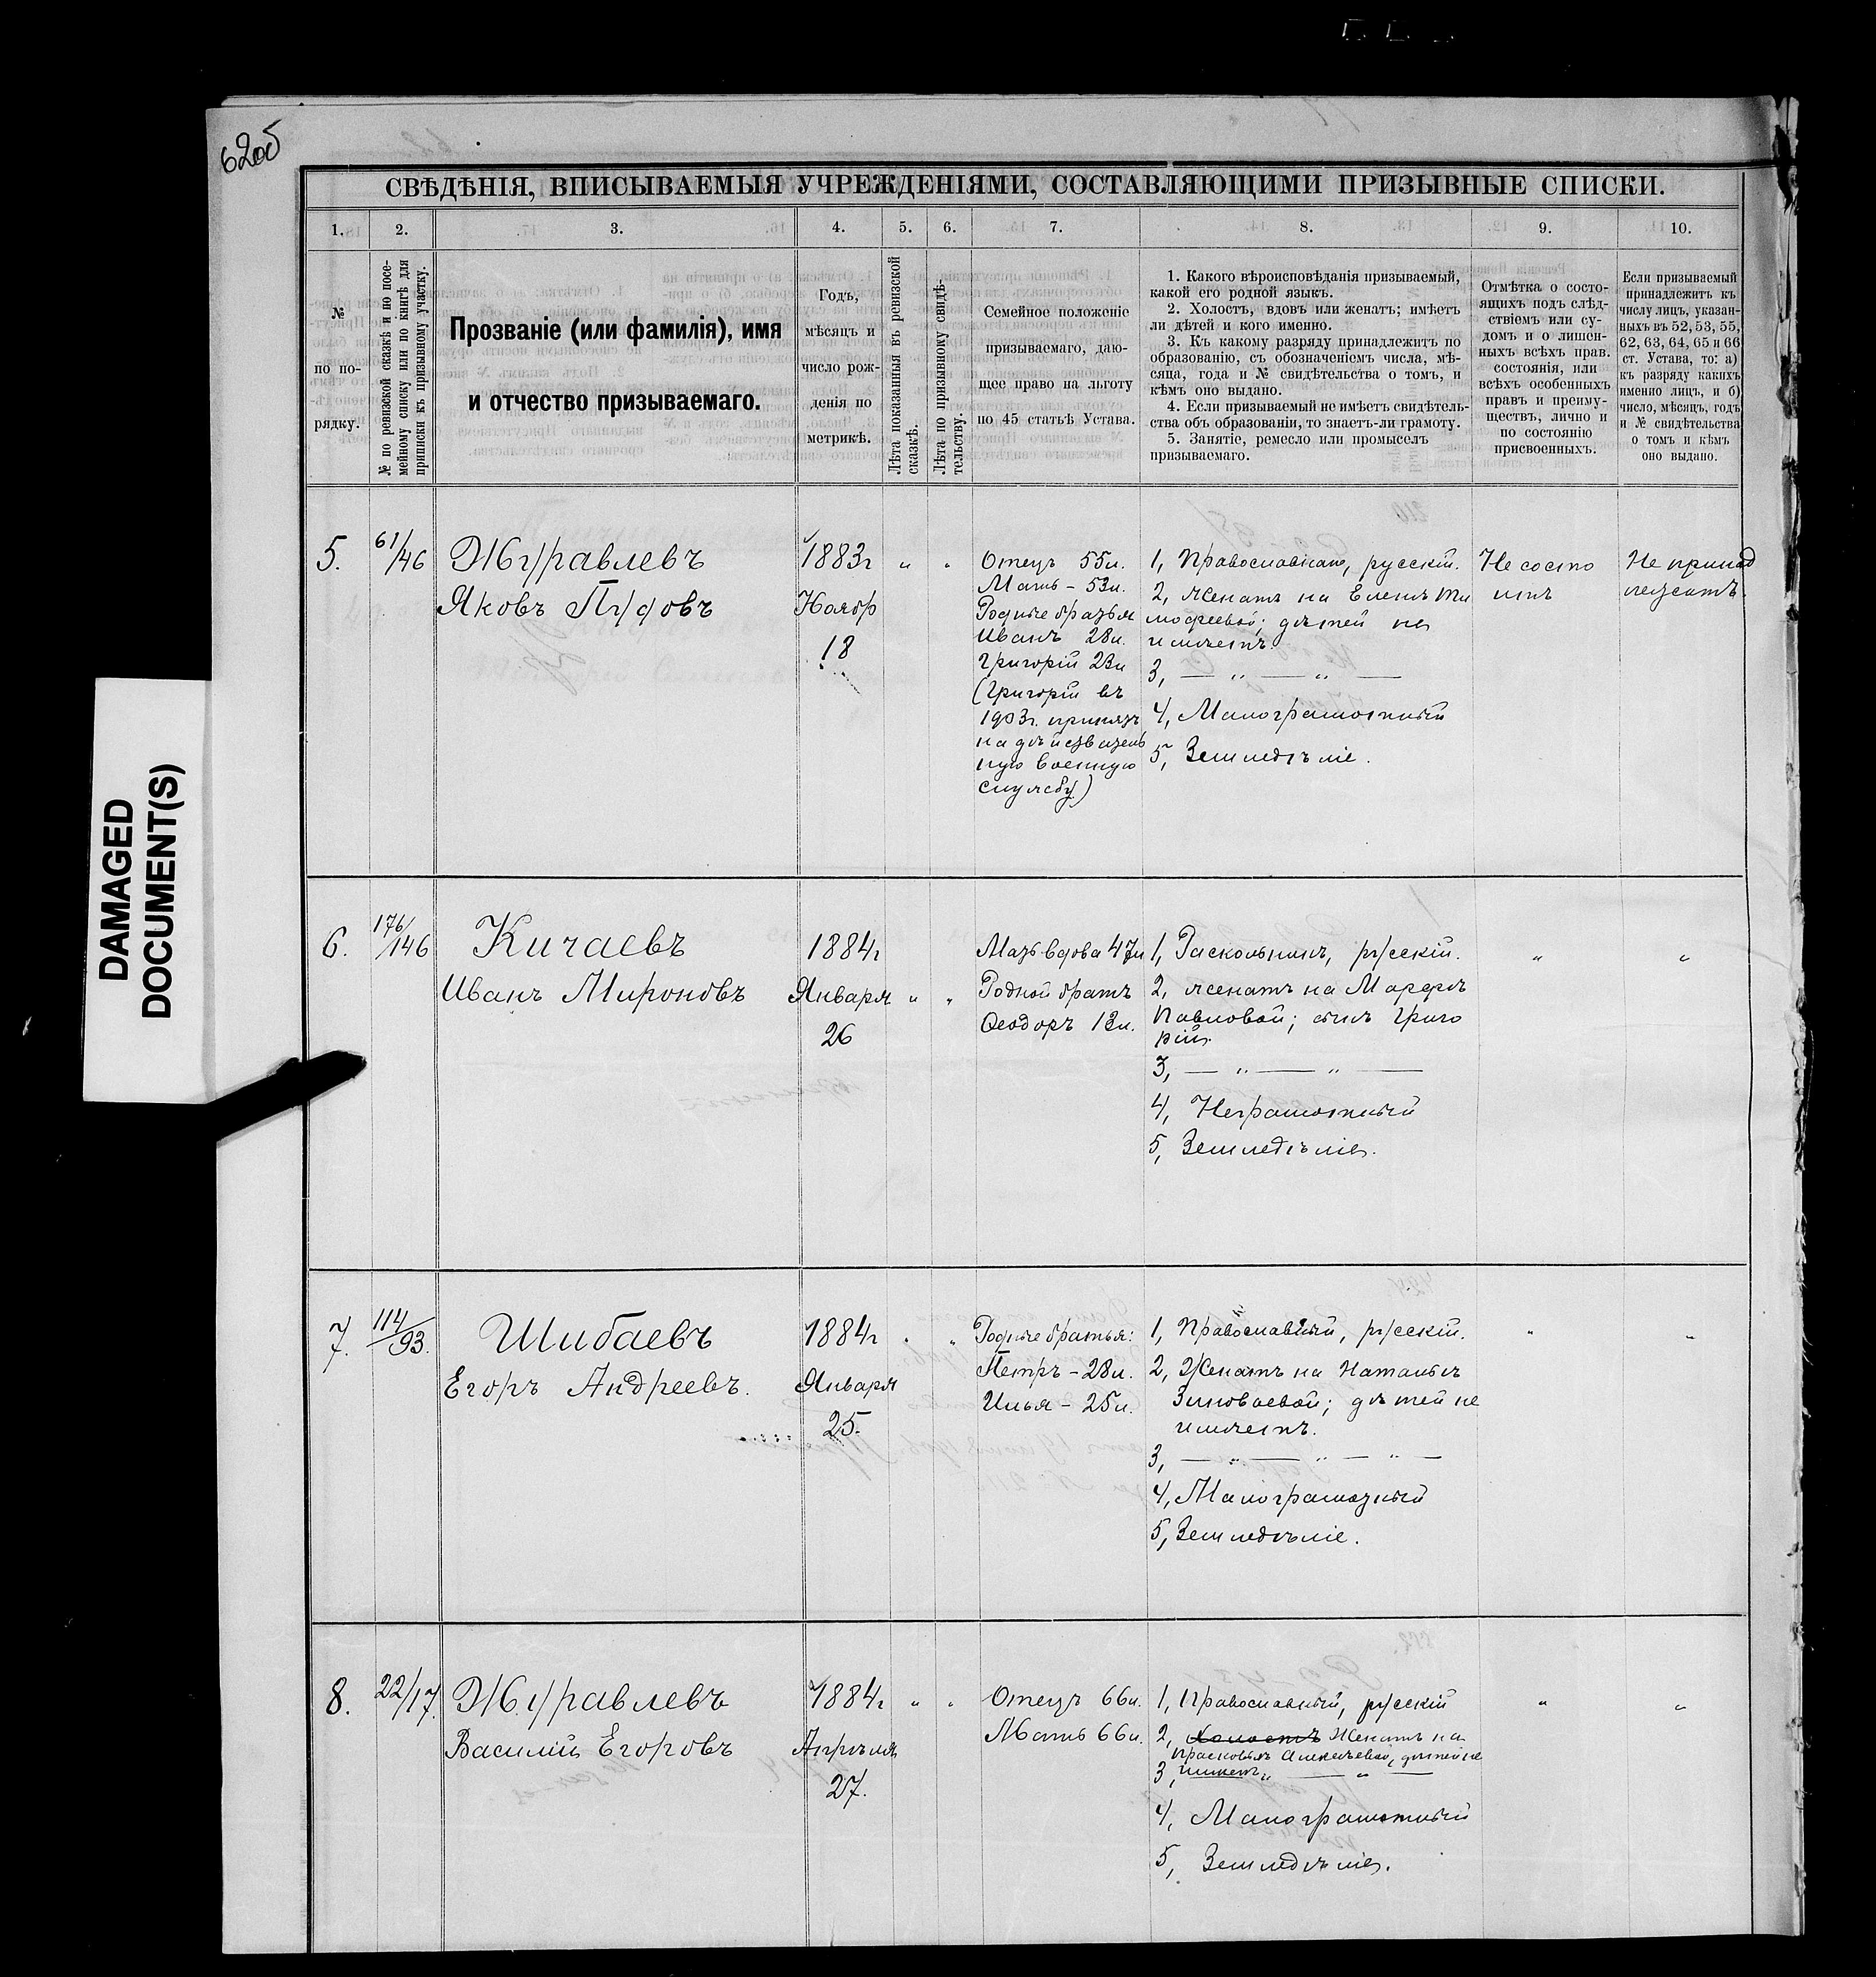 62об
DAMAGED
DOCUMENT(S)
СВѢДѢНІЯ, ВПИСЫВАЕМЫЯ УЧРЕЖДЕНІЯМИ, СОСТАВЛЯЮЩИМИ ПРИЗЫВНЫЕ СПИСКИ.
1. 2. 3. 4. 5. 6. 7. 8. 9. 10.
№
по по-
рядку.
№ по ревизской сказкѣ и по посе-
мейному списку или по книгѣ для
приписки къ призывному участку.
Прозваніе (или фамилія), имя
и отчество призываемаго.
Годъ,
мѣсяцъ и
число рож-
денія по
метрикѣ.
Лѣта показанныя въ ревизской
сказкѣ.
Лѣта по призывному свидѣ-
тельству.
Семейное положеніе
призываемаго, даю-
щее право на льготу
по 45 статьѣ Устава.
1. Какого вѣроисповѣданія призываемый,
какой его родной языкъ.
2. Холостъ, вдовъ или женатъ; имѣетъ
ли дѣтей и кого именно.
3. Къ какому разряду принадлежитъ по
образованію, съ обозначеніемъ числа, мѣ-
сяца, года и № свидѣтельства о томъ, и
кѣмъ оно выдано.
4. Если призываемый не имѣетъ свидѣтель-
ства объ образованіи, то знаетъ-ли грамоту.
5. Занятіе, ремесло или промыселъ
призываемаго.
Отмѣтка о состо-
ящихъ подъ слѣд-
ствіемъ или су-
домъ и о лишен-
ныхъ всѣхъ прав.
состоянія, или
всѣхъ особенныхъ
правъ и преиму-
ществъ, лично и
по состоянію
присвоенныхъ.
Если призываемый
принадлежитъ къ
числу лицъ, указан-
ныхъ въ 52, 53, 55,
62, 63, 64, 65 и 66
ст. Устава, то: а)
къ разряду какихъ
именно лицъ, и б)
число, мѣсяцъ, годъ
и № свидѣтельства
о томъ и кѣмъ
оно выдано.
5.
61/46
Журавлевъ
Яковъ Пудовъ
1883г
Ноябр
18
„
„
Отецъ 55л.
Мать – 53л.
Родные братья
Иванъ 28л.
Григорій 23л
(Григорій въ
1903г. принятъ
на дѣйствитель
ную военную
службу)
1, Православный, русскій.
2, Женатъ на Еленѣ Ти
мофеевой; дѣтей не
имѣетъ.
3, — „ — „ —
4, Малограмотный
5, Земледѣліе.
Не состо
итъ
Не принад
лежитъ.
6.
176/146
Кичаевъ
Иванъ Мироновъ
1884г
Января
26
„
„
Мать вдова 47л
Родной братъ
Ѳеодоръ 13л.
1, Раскольникъ, русскій.
2, женатъ на Марфѣ
Павловой; сынъ Григо
рій.
3, — „ — „ —
4, Неграмотный
5, Земледѣліе.
„
„
7.
114/93.
Шибаевъ
Егоръ Андреевъ.
1884г
Января
25.
„
„
Родные братья:
Петръ – 28л.
Илья – 25л.
1, Православный, русскій.
2, Женатъ на Натальѣ
Зиновьевой; дѣтей не
имѣетъ.
3, — „ — „ — „ —
4, Малограмотный
5, Земледѣліе.
„
„
8.
22/17.
Журавлевъ
Василій Егоровъ
1884г
Апрѣля
27.
„
„
Отецъ 66л.
Мать 66л.
1, Православный, русскій
2, Холостъ Женатъ на
Прасковьѣ Алексѣевой, дѣтей не
3, имѣетъ „ — „ —
4, Малограмотный
5, Земледѣліе.
„
„